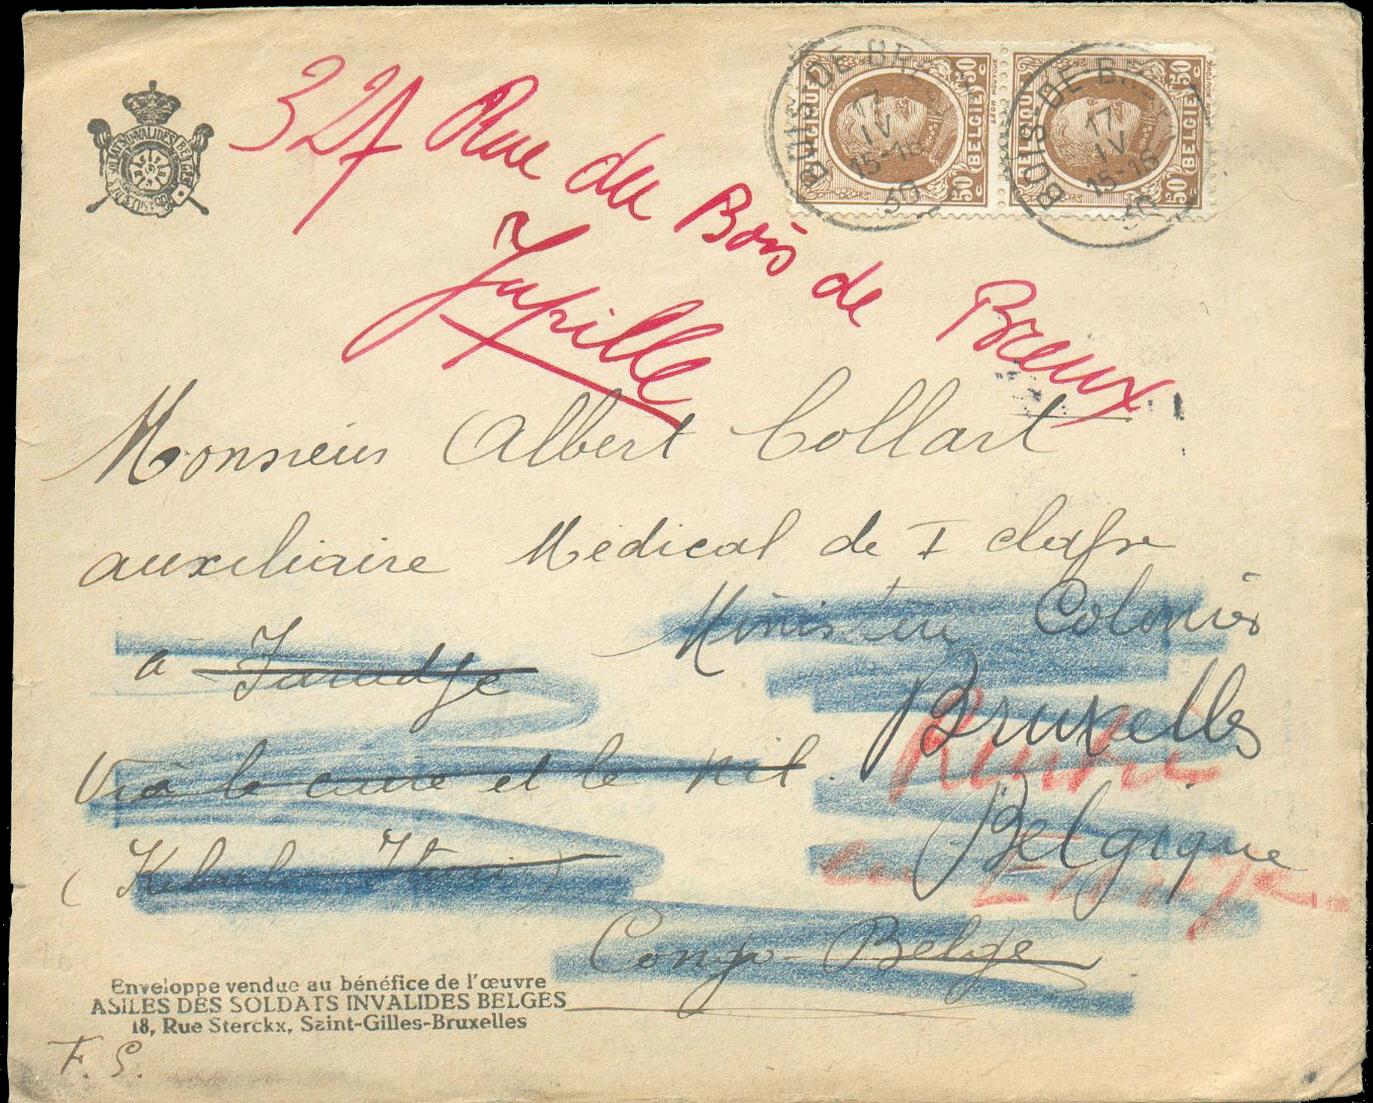 ASILES DES SOLDATS INVALIDES BELGES
BELGIQUE 50c BELGIË 50c
BELGIQUE 50c BELGIË 50c
BOIS-DE-BR
17
IV
15-16
30
BOIS-DE-BR
17
IV
15-16
30
Rue du Bois de Breux
Jupille
Monsieur Albert Collart
auxiliaire Médical de I classe
Colonies
à Faradje
Bruxelles
Rentré
Via la et le Nil.
Belgique
en
Congo-Belge
Enveloppe vendue au bénéfice de l'œuvre
ASILES DES SOLDATS INVALIDES BELGES
18, Rue Sterckx, Saint-Gilles-Bruxelles
F. S.